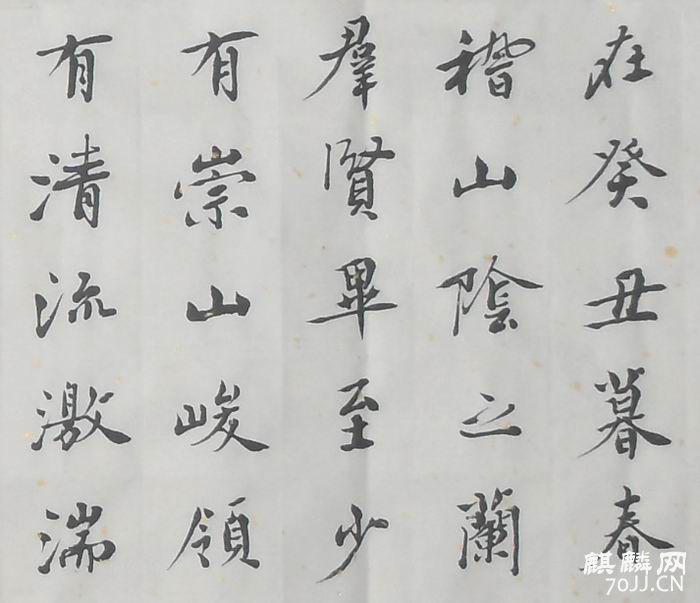 在癸丑暮春
稽山陰之蘭
羣賢畢至少
有崇山峻領
有清流激湍
麒麟网
70JJ.CN